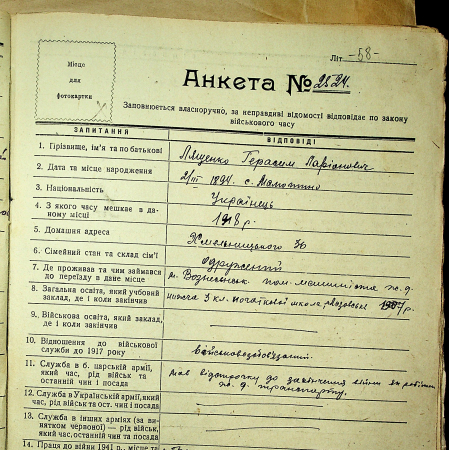 Літ -58-
Місце
для
фотокартки
Анкета № 2824.
Заповнюється власноручно, за неправдиві відомості відповідає по закону
військового часу
ЗАПИТАННЯ
ВІДПОВІДІ
1. Прізвище, ім'я та по батькові
Ляшенко Герасим Ларіонович
2. Дата та місце народження
1894 с.
3. Національність
Українець
4. З якого часу мешкає в да-
ному місці
1918 р.
5. Домашня адреса
Хмельницького 36
6. Сімейний стан та склад сім'ї
одружений
7. Де проживав та чим займався
до переїзду в дане місце
м. Вознесенськ пом. машиніста по. д.
8. Загальна освіта, який учбовий
заклад, де і коли закінчив
нисша 3 кл. початкової школи 1907 р
9. Військова освіта, який заклад,
де і коли закінчив
10. Відношення до військової
служби до 1917 року
військовозобов'язаний
11. Служба в б. царській армії,
який час, рід військ та
останній чин і посада
мав відстрочку до закінчення війни як робітн
по. д. транспорту.
12. Служба в Українській армії, який
час, рід військ та ост. чин і посада
13. Служба в інших арміях (за ви-
нятком червоної) — рід військ,
який час, останній чин та посада
14. Праця до війни 1941 р., місце та